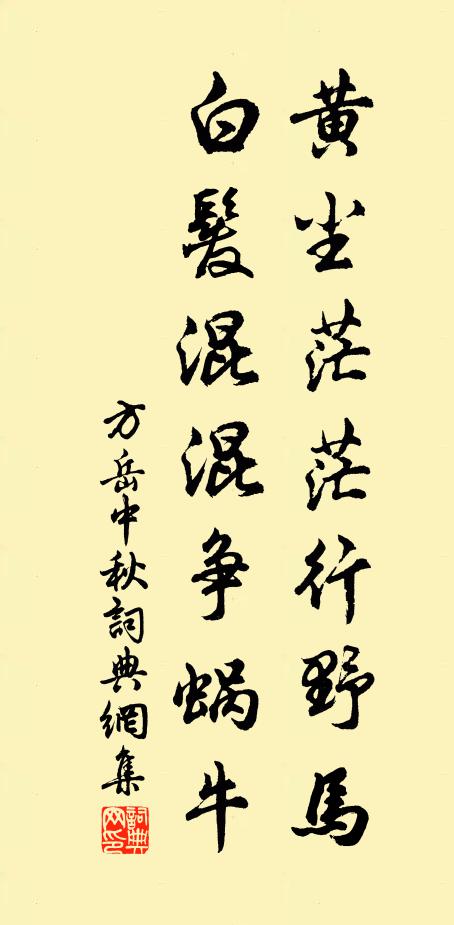 黄尘茫茫行野馬
白髮混混争蜗牛
方岳中秋詞典網集
詞典網印